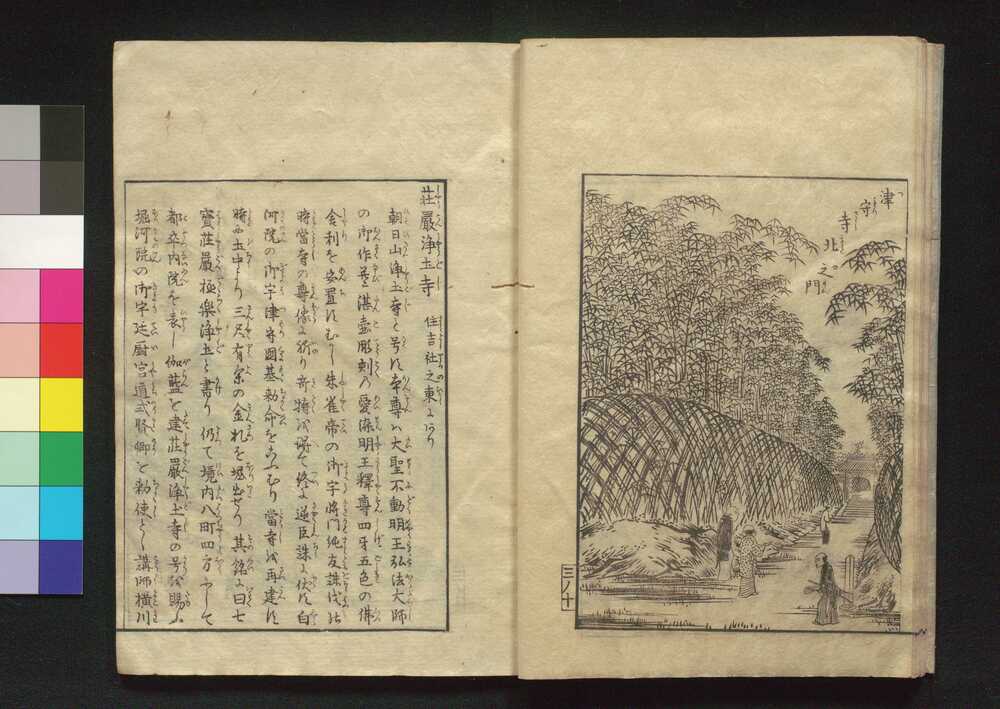 津守寺
北之門
三ノ十
荘嚴浄土寺 住吉社之東にあり
朝日山浄土寺と号す本尊ハ大聖不動明王弘法大師
の御作並ニ湛慶彫刻の愛染明王釋尊四牙五色の佛
舎利を安置すむかし朱雀帝の御宇將門純友誅伐の
時當寺の尊像に祈り奇特を得て終に逆臣誅に伏す白
河院の御宇津守國基勅命をかふむり當寺を再建す
時に土中より三尺有余の金札を堀出せり其銘に曰七
寳荘嚴極樂浄土と書り仍て境内八町四方にして
都卒内院を表し伽藍を建荘嚴浄土寺の号を賜ふ
堀河院の御宇延𢌞宮道式賢卿を勅使とし講師横川